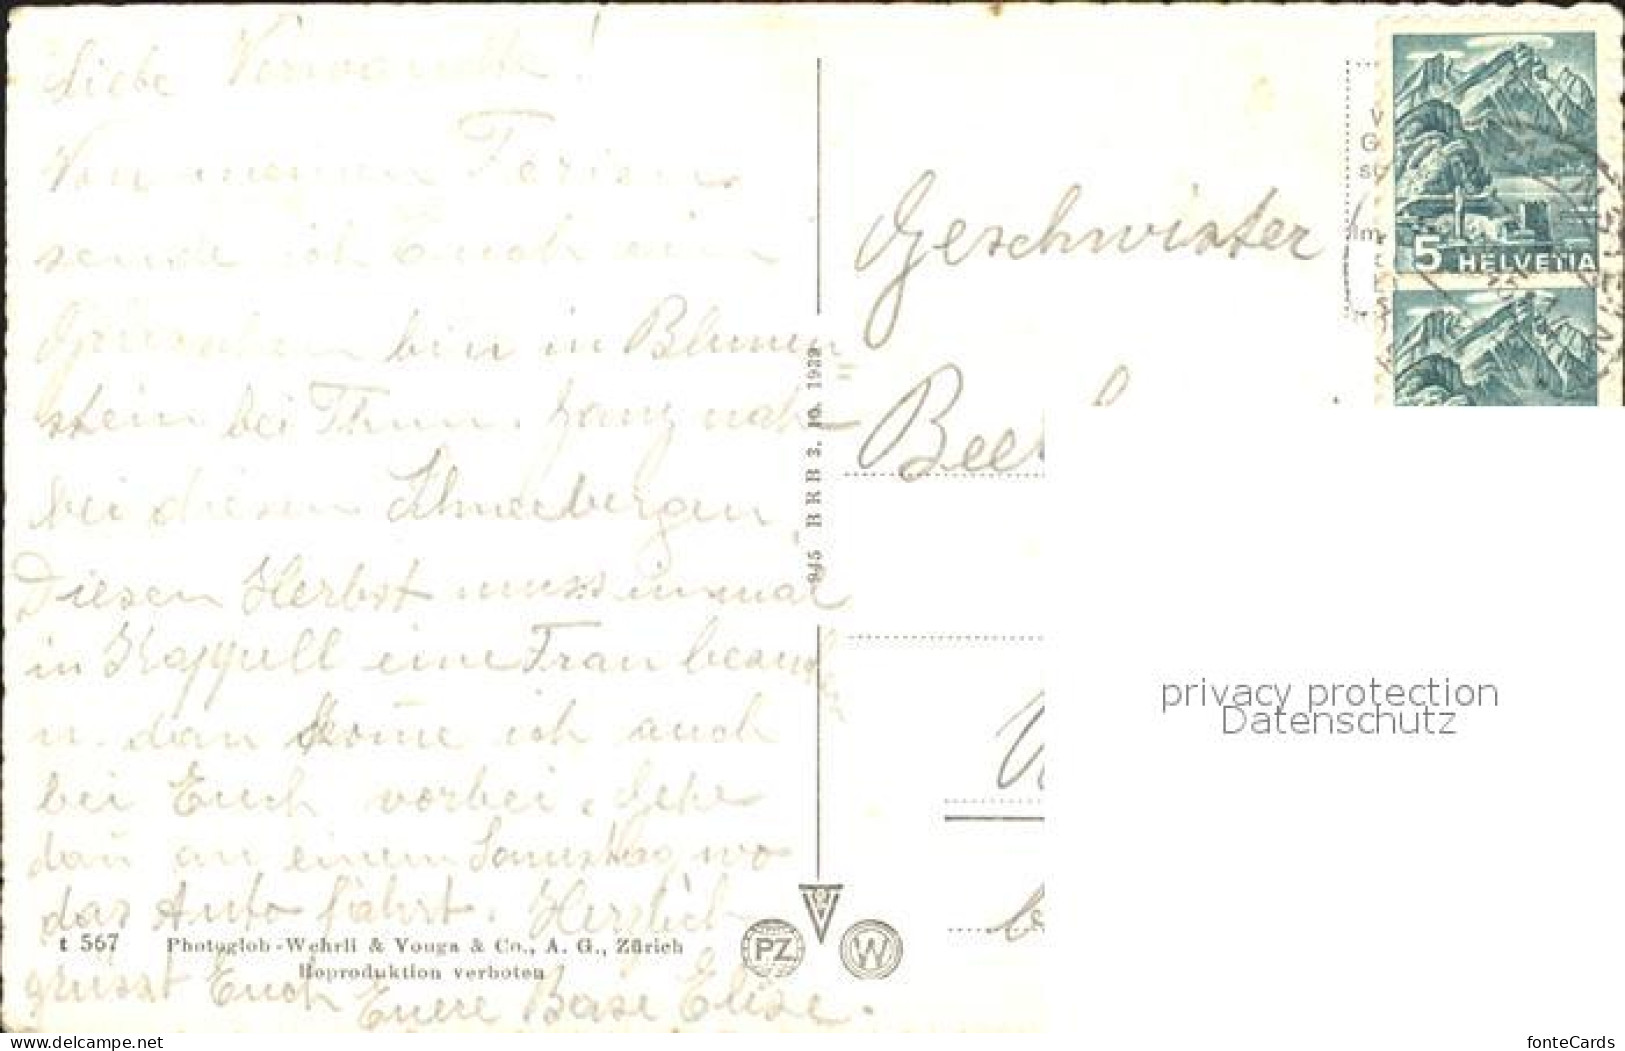 Liebe Verwandte!
Von meinen Ferien
sende ich Euch ein
Grüsschen bin in Blumen
stein bei Thun. Ganz nah
bei diesen Schneebergen
Diesen Herbst muss inmal
in Kappell eine Frau besuchen
u. dan kome ich auch
bei Euch vorbei. Gehe
dan an einem Samstag wo
das Auto fährt. Herzlich
grüsst Euch Euere Base Elise.
t 567 Photoglob-Wehrli & Vouga & Co., A. G., Zürich
Reproduktion verboten
945 BRB 3. 10. 1939
PZ
W
Geschwister
5 HELVETIA
privacy protection
Datenschutz
www.delcampe.net
fonteCards